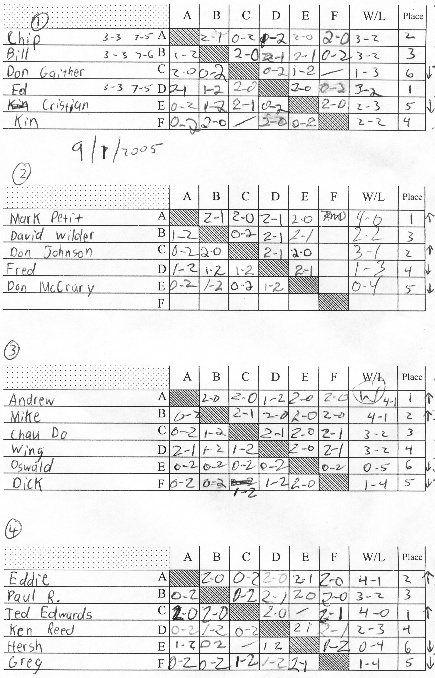 ①
A B C D E F W/L Place
Chip 3-3 7-5 A 2-1 0-2 0-2 2-0 2-0 3-2 2
Bill 3-3 7-6 B 1-2 2-0 2-1 2-1 0-2 3-2 3
Don Gaither C 2-0 0-2 0-2 1-2 1-3 6 ↓
Ed 3-3 7-5 D 2-1 1-2 2-0 2-0 0-2 3-2 1
Cristian E 0-2 1-2 2-1 0-2 2-0 2-3 5 ↓
Kin F 0-2 2-0 / 2-0 0-2 2-2 4
9/1/2005
②
A B C D E F W/L Place
Mark Petit A 2-1 2-0 2-1 2-0 4-0 1 ↑
David Wilder B 1-2 0-2 2-1 2-1 2-2 3
Don Johnson C 0-2 2-0 2-1 2-0 3-1 2 ↑
Fred D 1-2 1-2 1-2 2-1 1-3 4 ↓
Don McCrary E 0-2 1-2 0-2 1-2 0-4 5 ↓
F
③
A B C D E F W/L Place
Andrew A 2-0 2-0 1-2 2-0 2-0 4-1 1 ↑
Mike B 0-2 2-1 2-0 2-0 2-0 4-1 2 ↑
Chau Do C 0-2 1-2 2-1 2-0 2-1 3-2 3
Wing D 2-1 1-2 1-2 2-0 2-1 3-2 4
Oswald E 0-2 0-2 0-2 0-2 0-2 0-5 6 ↓
Dick F 0-2 0-2 1-2 1-2 2-0 1-4 5 ↓
④
A B C D E F W/L Place
Eddie A 2-0 0-2 2-0 2-1 2-0 4-1 2 ↑
Paul R. B 0-2 0-2 2-1 2-0 2-0 3-2 3
Ted Edwards C 2-0 2-0 2-0 / 2-1 4-0 1 ↑
Ken Reed D 0-2 1-2 0-2 2-1 2-1 2-3 4
Hersh E 1-2 0-2 / 1-2 1-2 0-4 6 ↓
Greg F 0-2 0-2 1-2 1-2 2-1 1-4 5 ↓